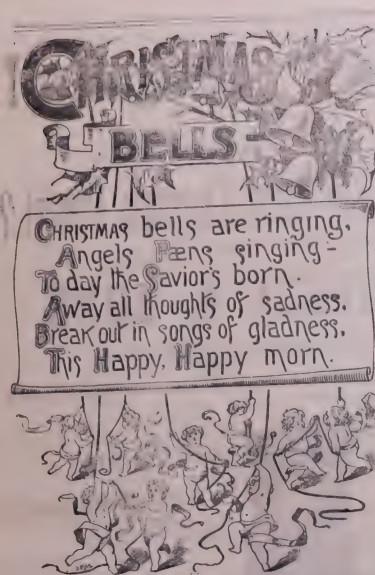 CHRISTMAS
BELLS
CHRISTMAS bells are ringing,
Angels Pæns singing -
To day the Savior's born.
Away all thoughts of sadness.
Break out in songs of gladness.
This Happy, Happy morn.